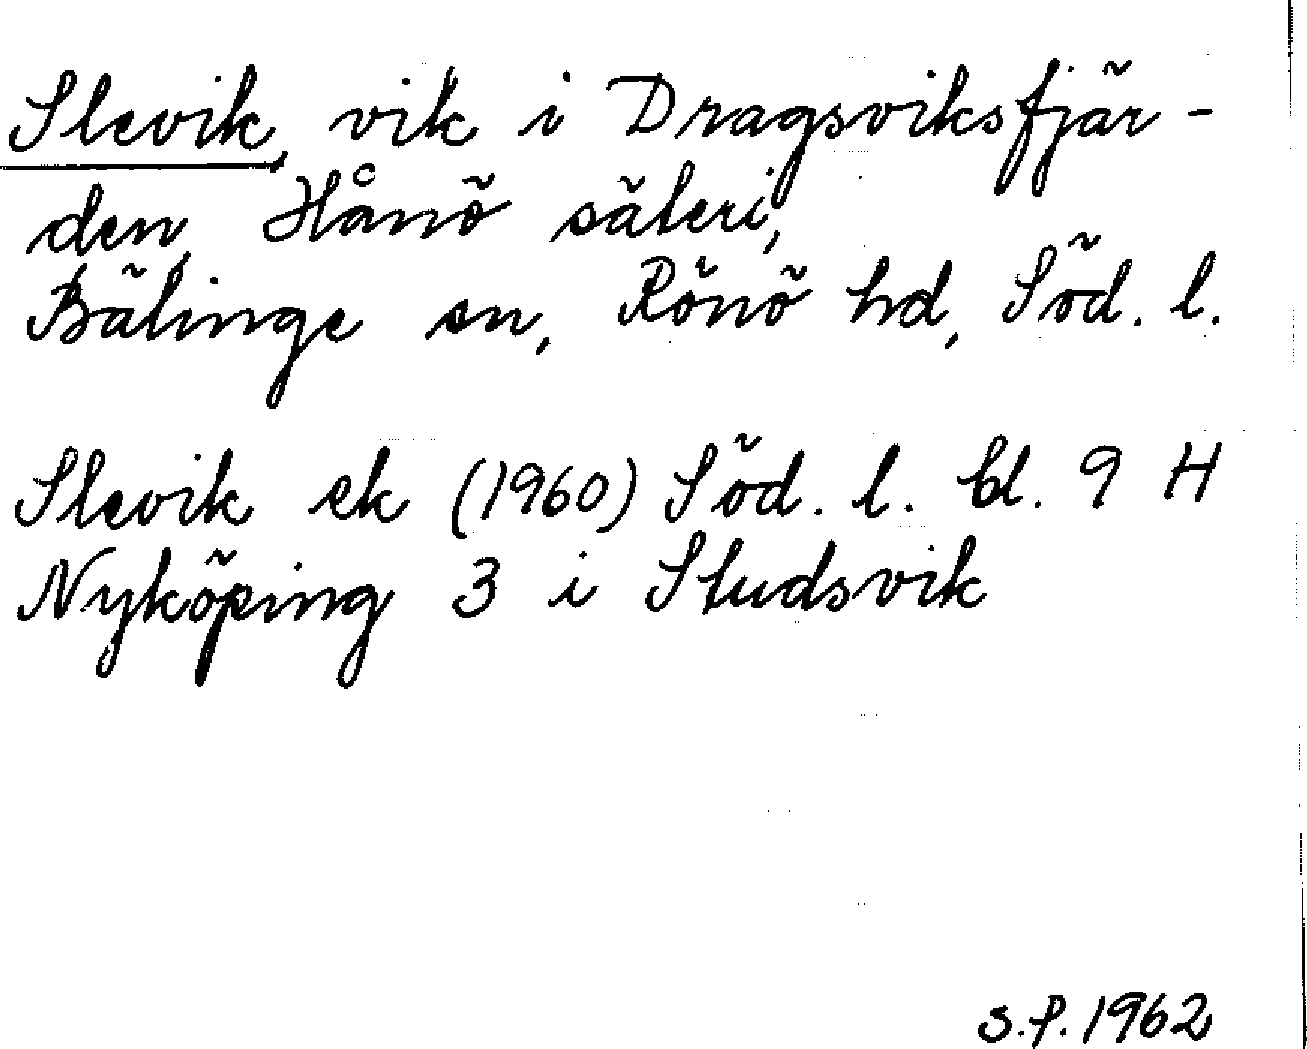 Slevik, vik i Dragsviksfjär-
den, Hånö säteri,
Bälinge sn, Rönö hd, Söd. l.
Slevik ek (1960) Söd. l. bl. 9 H
Nyköping 3 i Studsvik
S.P. 1962